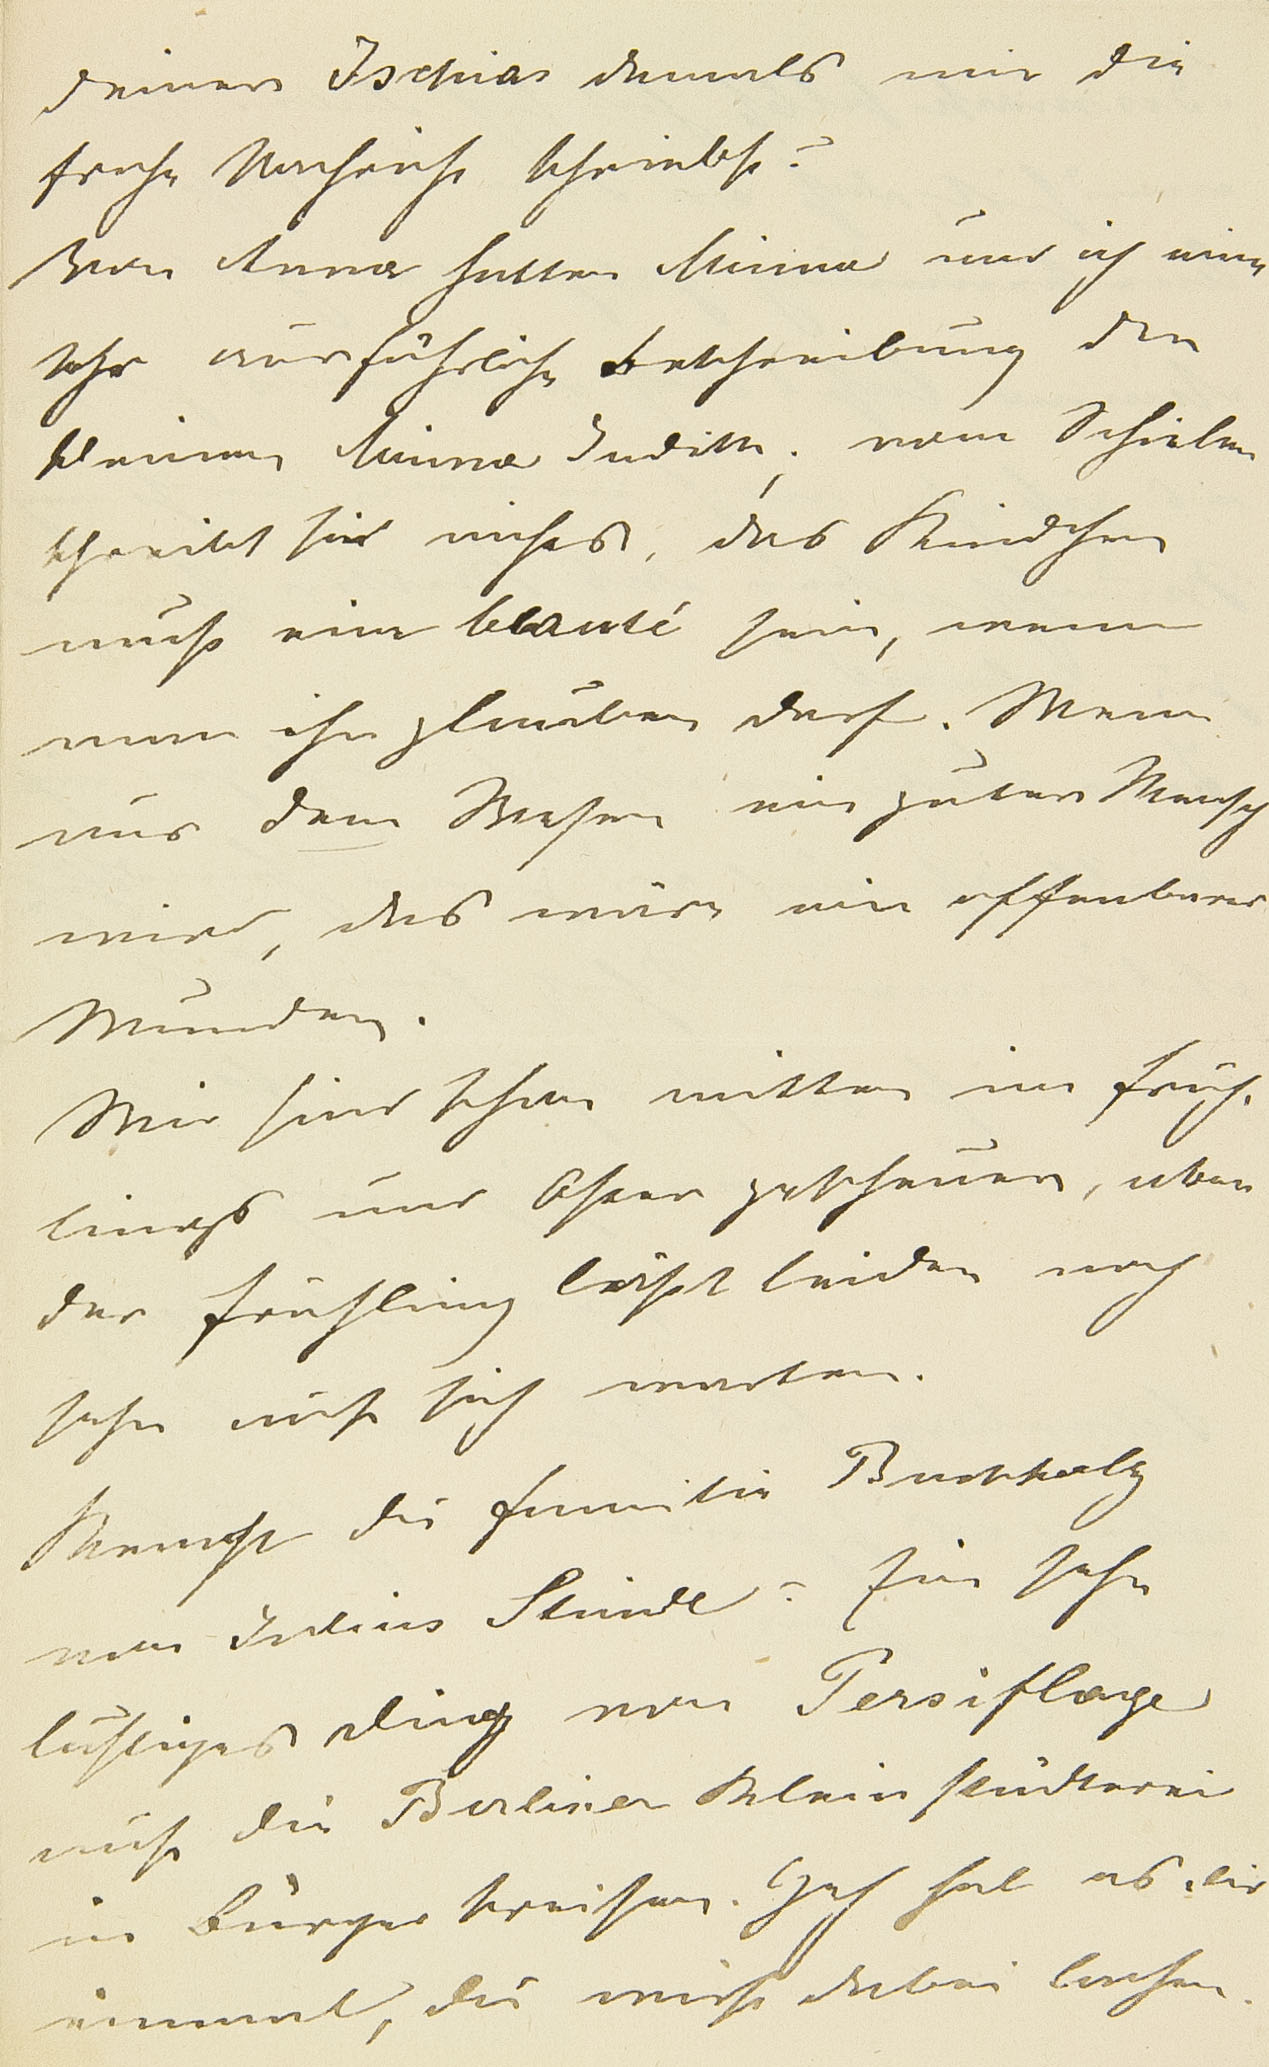 deiner Ischias damals mir die
frohe Nachricht schriebst?
Von Anna hatten Minna und ich eine
sehr ausführliche Beschreibung der
kleinen Minna Judith; vom Schielen
schreibt sie nichts, das Kindchen
muß eine beauté sein, wenn
man ihr glauben darf. Wenn
aus dem Wesen ein guter Mensch
wird, das wäre ein offenbares
Wunder.
Wir sind schon mitten im Früh-
lings und Oster gescheuer, aber
der Frühling läßt leider noch
sehr auf sich warten.
Kennst du Familie Buchholz
von Julius Stinde? Ein sehr
lustiges Ding von Persiflage
auf die Berliner Kleinstädterei
in Bürgerkreisen. Hol es dir
einmal, du wirst dabei lachen.